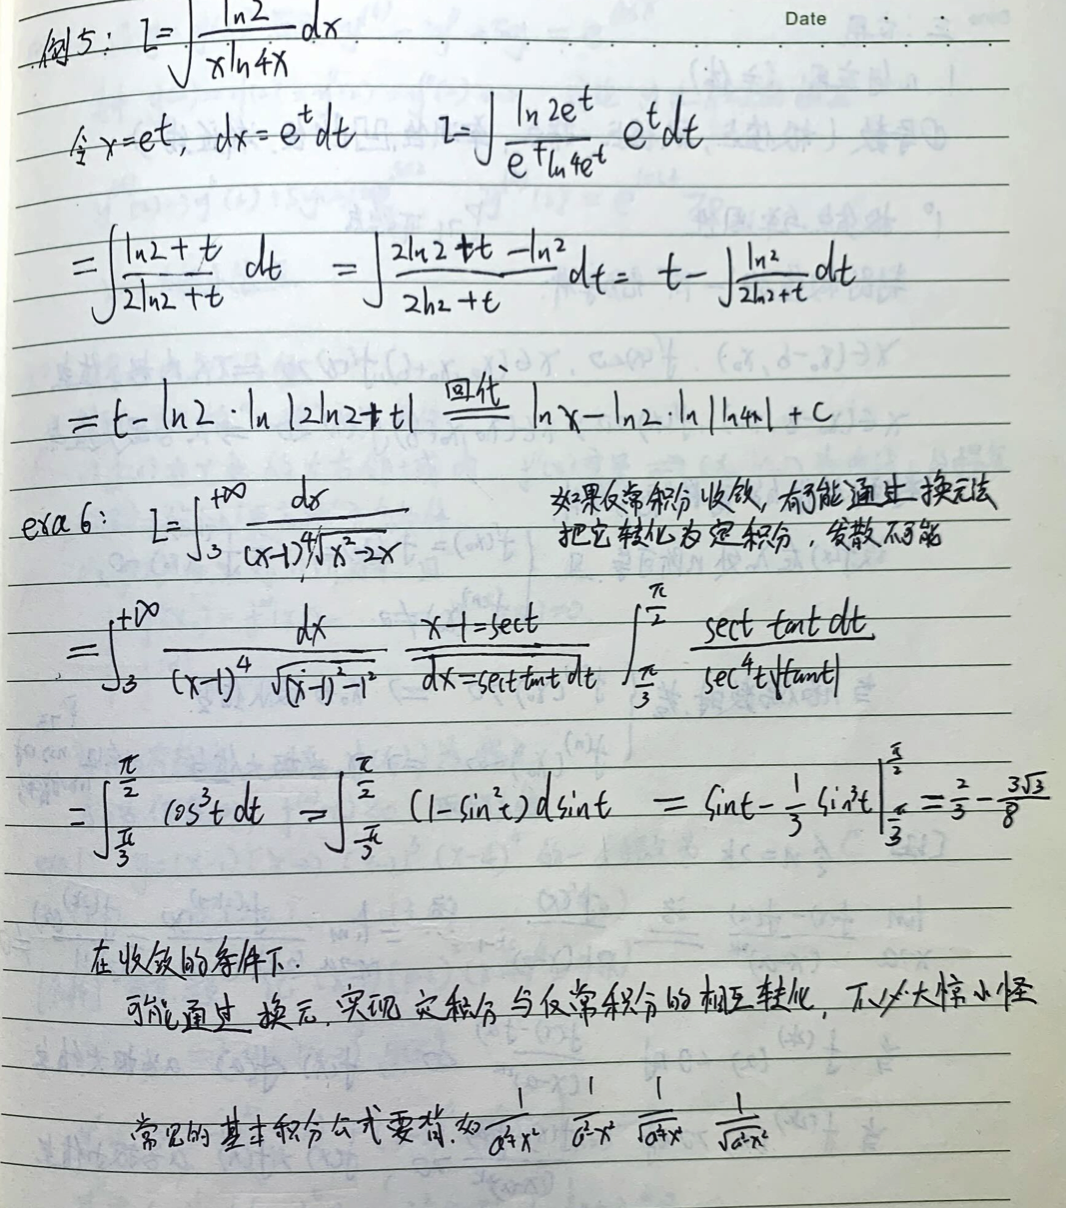 Date
例5: I=∫ ln2/(xln4x) dx
令x=e^t, dx=e^t dt I=∫ ln2e^t/(e^t ln4e^t) e^t dt
=∫ (ln2+t)/(2ln2+t) dt =∫ (2ln2+t-ln2)/(2ln2+t) dt = t-∫ ln2/(2ln2+t) dt
=t-ln2·ln|2ln2+t| 回代 lnx-ln2·ln|ln4x|+C
exa6: I=∫_3^{+∞} dx/((x-1)^4√(x²-2x)) 如果反常积分收敛,有可能通过换元法
把它转化为定积分,发散不可能
=∫_3^{+∞} dx/((x-1)^4 √((x-1)²-1²)) x-1=sect dx=sect tant dt ∫_{π/3}^{π/2} sect tant dt/(sec^4t|tant|)
=∫_{π/3}^{π/2} cos³t dt =∫_{π/3}^{π/2} (1-sin²t)dsint = sint-1/3 sin³t|_{π/3}^{π/2} =2/3-3√3/8
在收敛的条件下.
可能通过换元,实现定积分与反常积分的相互转化,不必大惊小怪
常见的基本积分公式要背.如 1/(a²+x²) 1/(a²-x²) 1/√(a²+x²) 1/√(a²-x²)